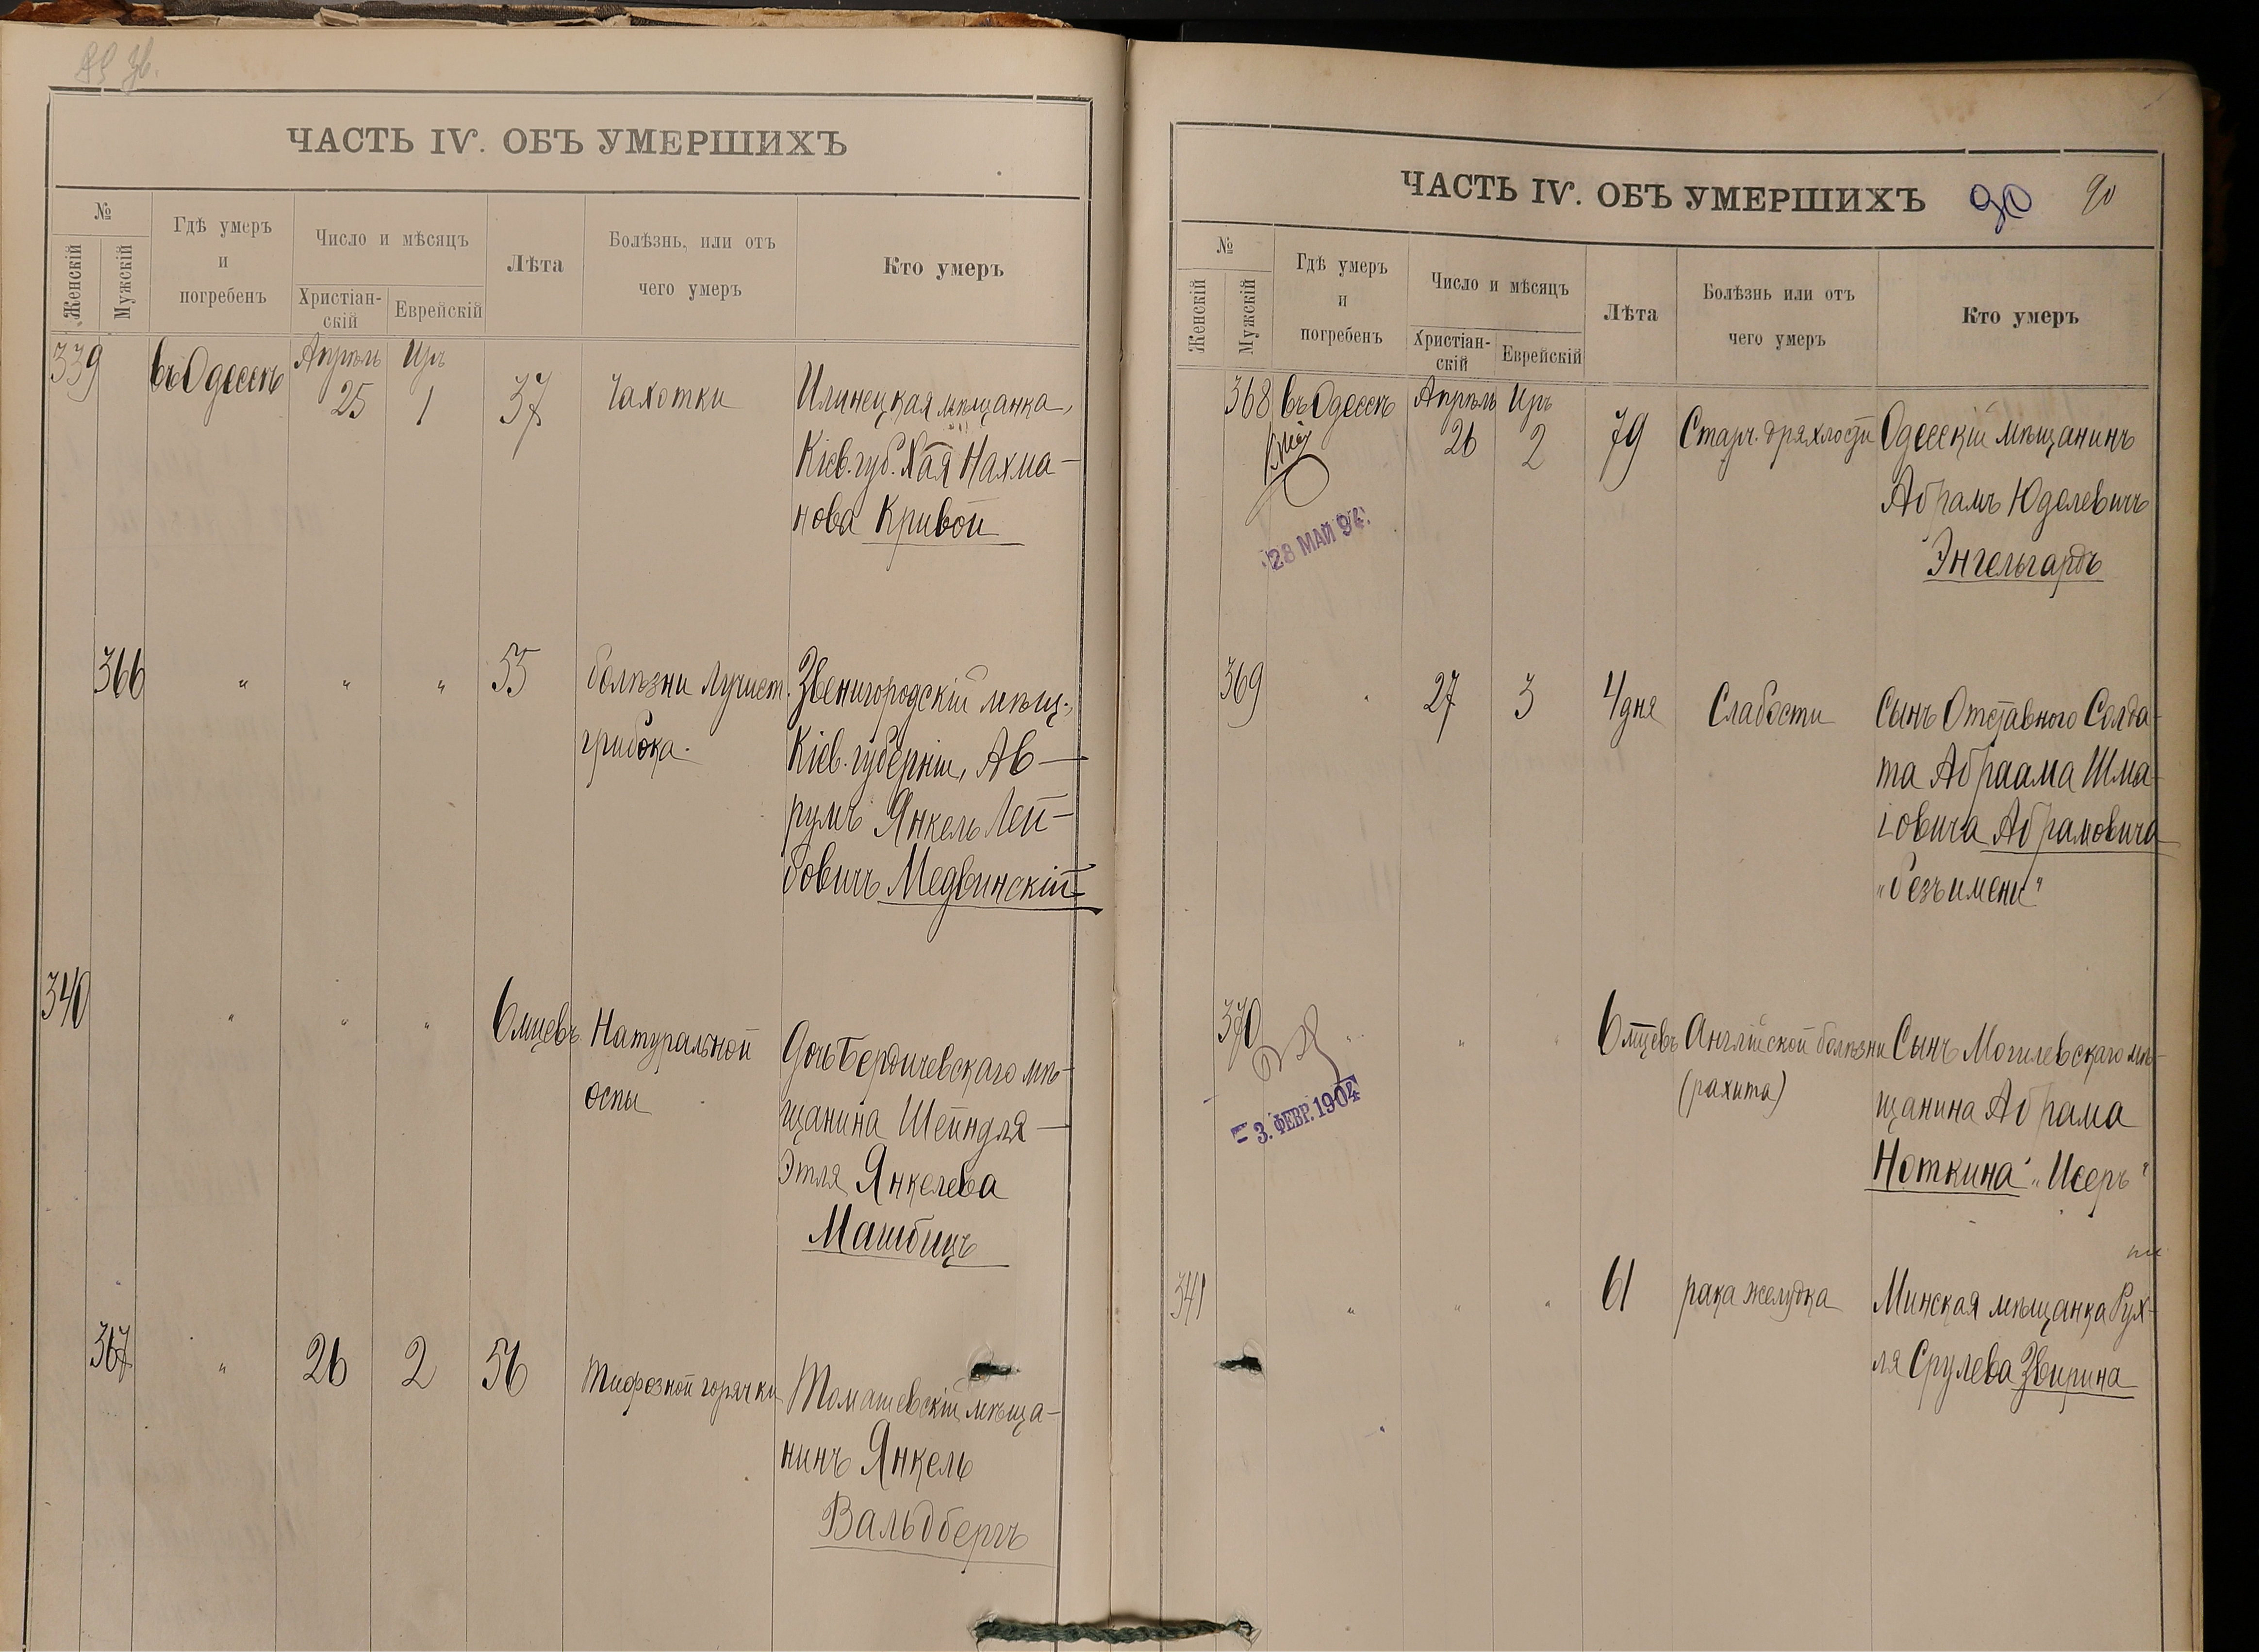 ЧАСТЬ IV. ОБЪ УМЕРШИХЪ
№
Женскій
Мужскій
Гдѣ умеръ
и
погребенъ
Число и мѣсяцъ
Христіан-
скій
Еврейскій
Лѣта
Болѣзнь, или отъ
чего умеръ
Кто умеръ
339 въ Одессѣ Апрѣль 25 Иръ 1 37 Чахотки Илинецкая мѣщанка,
Кіев. губ. Хая Нахма-
нова Кривой
366 " " " 55 болѣзни лучист. Звенигородскій мѣщ.,
грибка. Кіев. губерніи, Ав-
румъ Янкель Лей-
бовичъ Медвинскій
340 " " " 6 мцевъ Натуральной Дочь Бердичевскаго мѣ-
оспы щанина Шейндля-
Этля Янкелева
Машбицъ
367 " 26 2 56 Тифозной горячки Томашевскій мѣща-
нинъ Янкель
Вальдбергъ
ЧАСТЬ IV. ОБЪ УМЕРШИХЪ 90 90
№
Женскій
Мужскій
Гдѣ умеръ
и
погребенъ
Число и мѣсяцъ
Христіан-
скій
Еврейскій
Лѣта
Болѣзнь или отъ
чего умеръ
Кто умеръ
368 въ Одессѣ Апрѣль 26 Иръ 2 79 Старч. дряхлости Одесскій мѣщанинъ
Абрамъ Юделевичъ
Энгельгардъ
28 МАЙ 94
369 " 27 3 4 дня Слабости Сынъ Отставного Солда-
та Абраама Шма-
іовича Абрамовича
"безъ имени"
370 " " " 6 мцевъ Англійской болѣзни Сынъ Могилевскаго мѣ-
(рахита) щанина Абрама
Ноткина "Исеръ"
3. ФЕВР. 1904
341 " " " 61 рака желудка Минская мѣщанка Рух-
ля Срулева Звирина